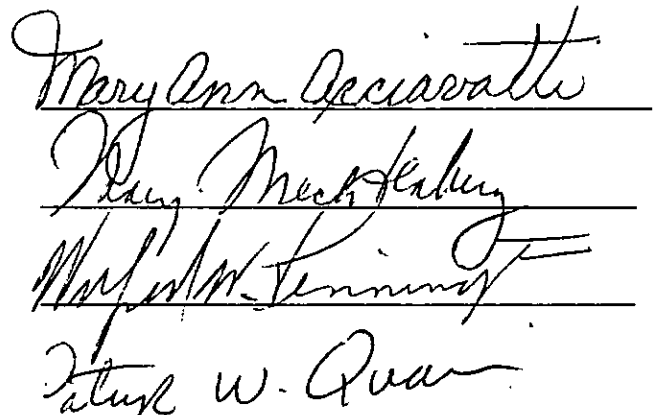 Mary Ann Acciavatti
Mecklenburg
W. Pennington
Patrick W. Quinn